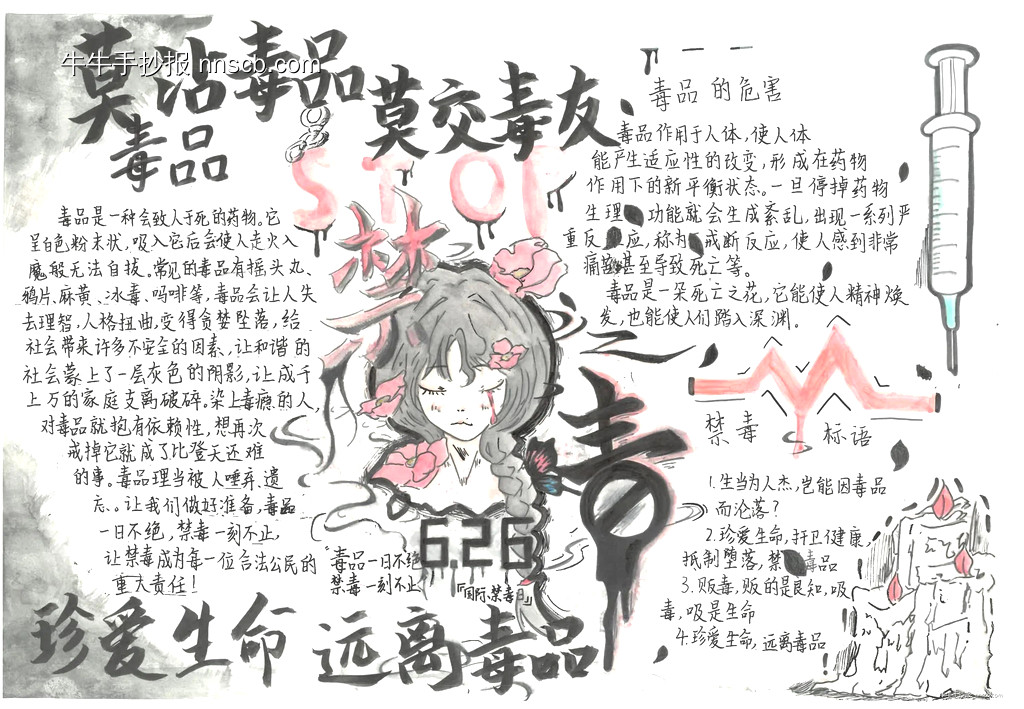 牛牛手抄报 nnscb.com
莫沾毒品
莫交毒友
毒品
毒品是一种会致人于死的药物。它
呈白色粉末状,吸入它后会使人走火入
魔般无法自拔。常见的毒品有摇头丸、
鸦片、麻黄、冰毒、吗啡等,毒品会让人失
去理智,人格扭曲,变得贪婪坠落,给
社会带来许多不安全的因素,让和谐的
社会蒙上了一层灰色的阴影,让成千
上万的家庭支离破碎。染上毒瘾的人,
对毒品就抱有依赖性,想再次
戒掉它就成了比登天还难
的事。毒品理当被人唾弃、遗
忘。让我们做好准备,毒品
一日不绝,禁毒一刻不止,
让禁毒成为每一位合法公民的
重大责任!
STOP
禁
毒
6.26
『国际禁毒日』
"毒品一日不绝
禁毒一刻不止
毒品的危害
毒品作用于人体,使人体
能产生适应性的改变,形成在药物
作用下的新平衡状态。一旦停掉药物
生理功能就会生成紊乱,出现一系列严
重反应,称为戒断反应,使人感到非常
痛苦甚至导致死亡等。
毒品是一朵死亡之花,它能使人精神焕
发,也能使人们踏入深渊。
禁毒 标语
1.生当为人杰,岂能因毒品
而沦落?
2.珍爱生命,扞卫健康,
抵制堕落,禁毒品
3.贩毒,贩的是良知,吸
毒,吸是生命
4.珍爱生命,远离毒品
!
珍爱生命 远离毒品